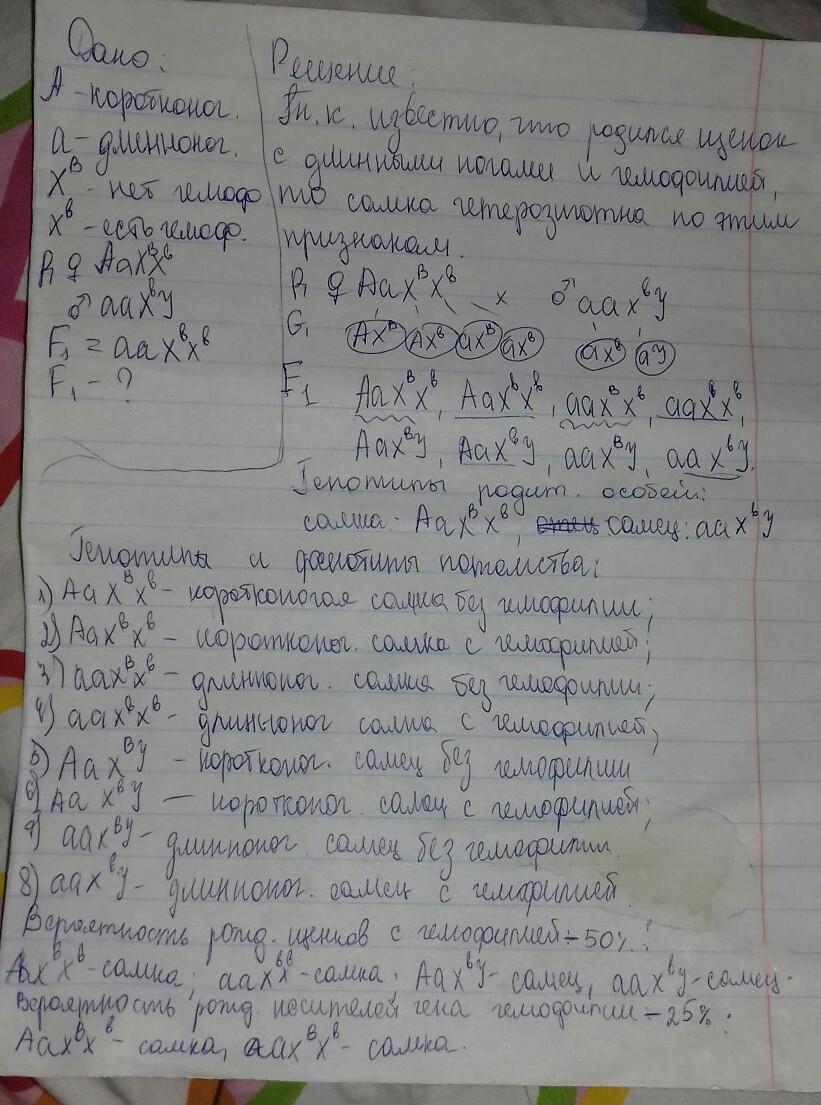 Дано:
А - коротконог.
а - длинноног.
Xᴮ - нет гемофо
Xᵇ - есть гемоф.
P, ♀ AaXᴮXᵇ
♂ aaXᵇY
F₁ = aaXᵇXᵇ
F₁ - ?
Решение:
Т.к. известно, что родился щенок
с длинными ногами и гемофилией,
то самка гетерозиготна по этим
признакам.
P, ♀ AaXᴮXᵇ x ♂ aaXᵇY
G, AXᴮ AXᵇ aXᴮ aXᵇ aXᵇ aY
F₁ AaXᴮXᵇ, AaXᵇXᵇ, aaXᴮXᵇ, aaXᵇXᵇ,
AaXᴮY, AaXᵇY, aaXᴮY, aaXᵇY.
Генотипы родит. особей:
самка - AaXᴮXᵇ, самец: aaXᵇY
Генотипы и фенотипы потомства:
1) AaXᴮXᵇ - коротконогая самка без гемофилии;
2) AaXᵇXᵇ - коротконог. самка с гемофилией;
3) aaXᴮXᵇ - длинноног. самка без гемофилии;
4) aaXᵇXᵇ - длинноног самка с гемофилией;
5) AaXᴮY - коротконог. самец без гемофилии
6) AaXᵇY - коротконог. самец с гемофилией;
7) aaXᴮY - длинноног. самец без гемофилии.
8) aaXᵇY - длинноног. самец с гемофилией.
Вероятность рожд. щенков с гемофилией - 50%:
AaXᵇXᵇ - самка; aaXᵇXᵇ - самка; AaXᵇY - самец, aaXᵇY - самец.
Вероятность рожд. носителей гена гемофилии - 25%:
AaXᴮXᵇ - самка, aaXᴮXᵇ - самка.